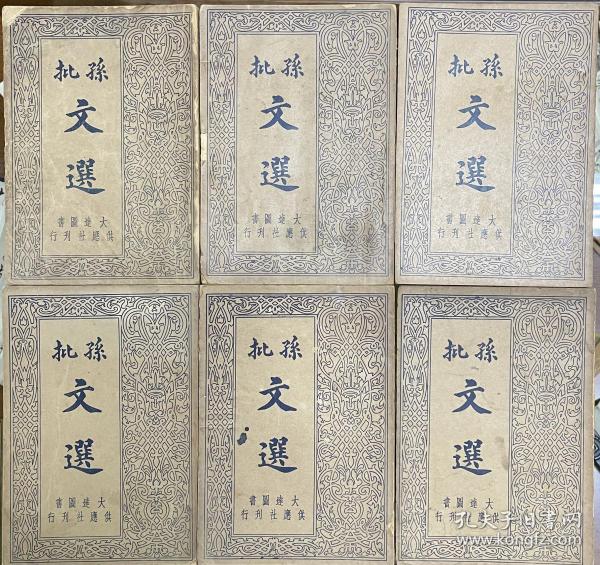 孫批
文選
大達圖書
供應社刊行
孫批
文選
大達圖書
供應社刊行
孫批
文選
大達圖書
供應社刊行
孫批
文選
大達圖書
供應社刊行
孫批
文選
大達圖書
供應社刊行
孫批
文選
大達圖書
供應社刊行
孔夫子旧书网
www.kongfz.com